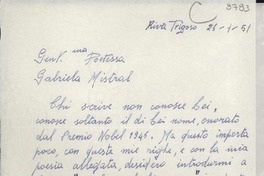 C
9793
Riva Trigoso 26-1-51
Gent.ma Poetessa
Gabriela Mistral
Chi scrive non conosce Lei,
conosce soltanto il di Lei nome, onorato
dal Premio Nobel 1945. Ma questo importa
poco, con queste mie righe, e con la mia
poesia allegata, desidero introdurmi a